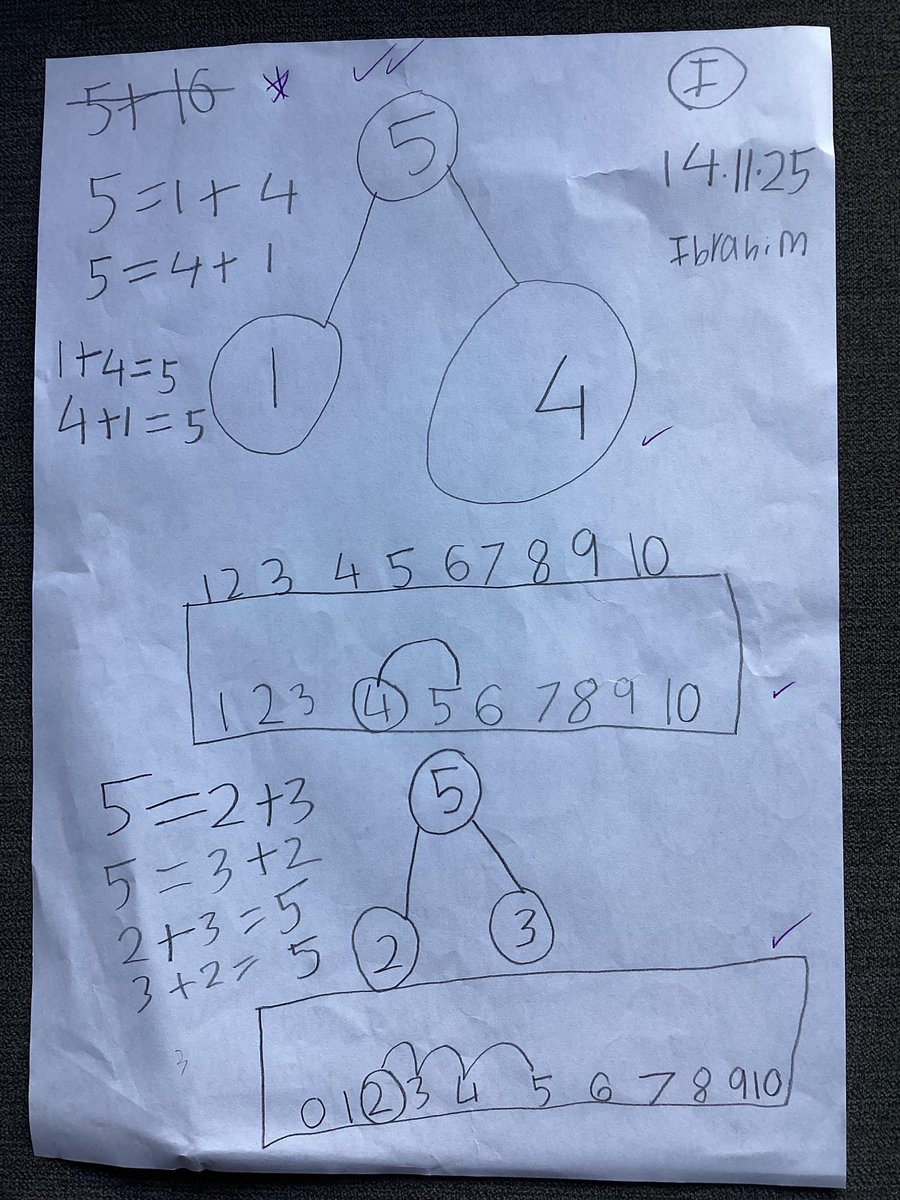 5+ 16
I
5
14.11.25
5=1+4
Ibrahim
5=4+1
1+4=5
4+1=5
1
4
1 2 3 4 5 6 7 8 9 10
1 2 3 4 5 6 7 8 9 10
5
5=2+3
5=3+2
2+3=5
3+2=5
2
3
3
0 1 2 3 4 5 6 7 8 9 10